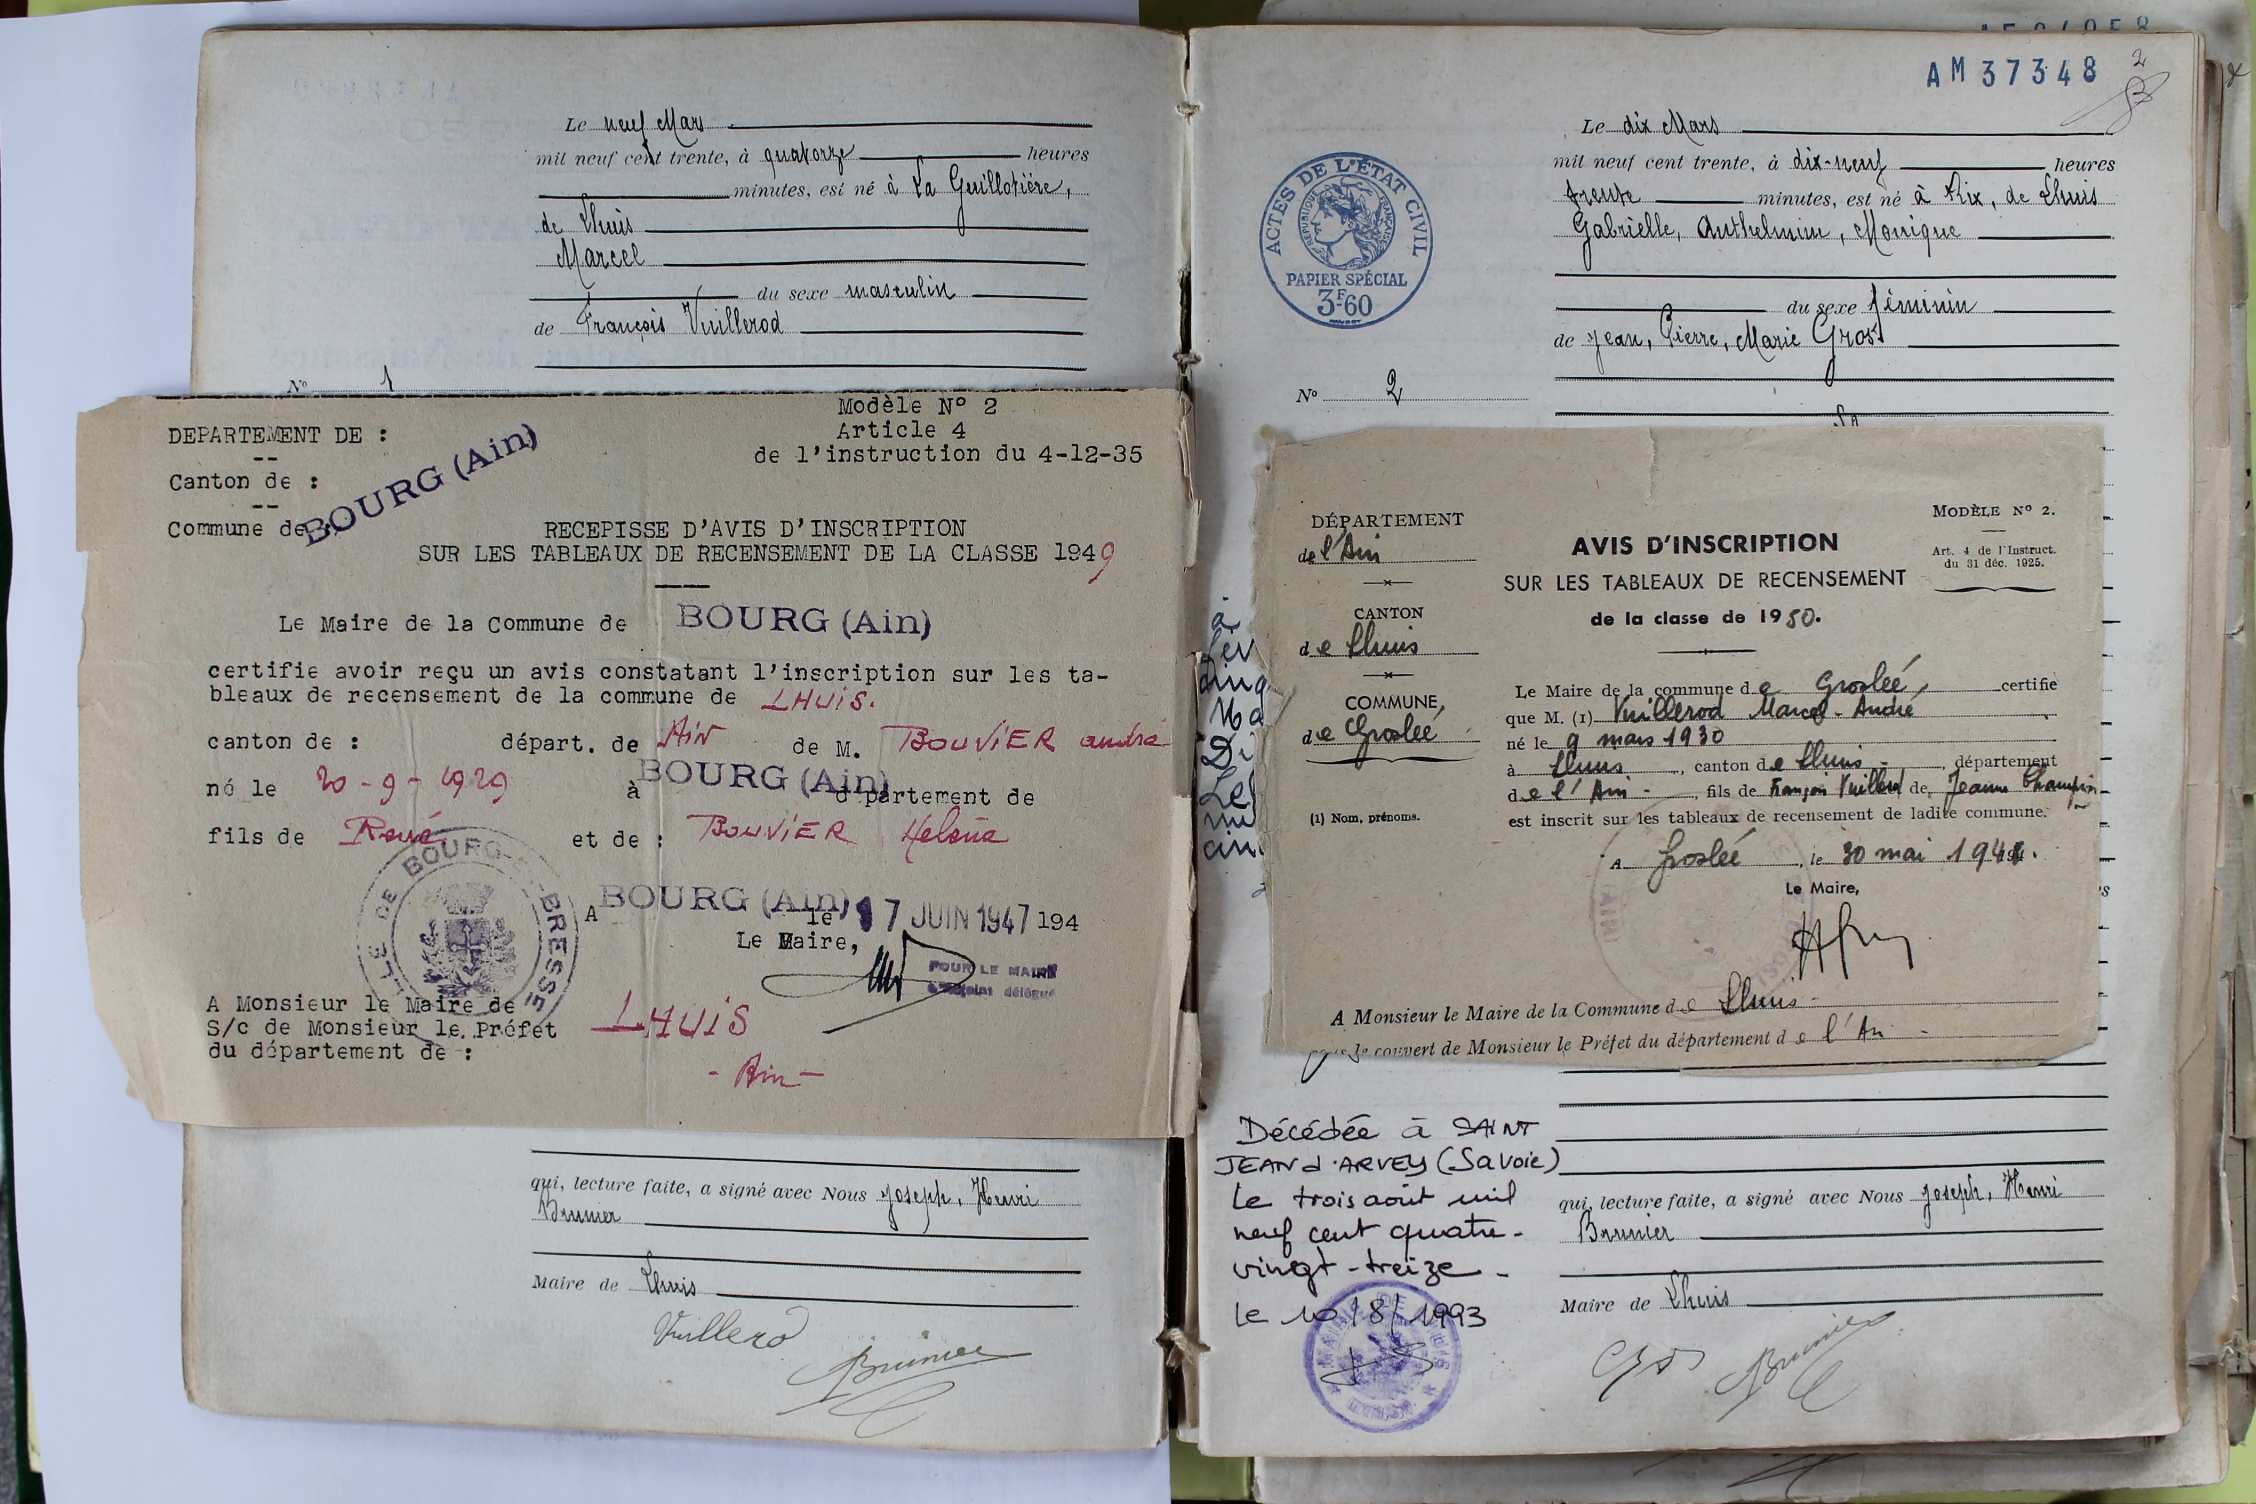 Le neuf Mars
mil neuf cent trente, à quatorze heures
minutes, est né à La Guillotière,
de Lhuis
Marcel
du sexe masculin
de François Vuillerod
N° 1
Modèle N° 2
Article 4
de l'instruction du 4-12-35
DEPARTEMENT DE :
--
Canton de :
--
Commune de :
BOURG (Ain)
RECEPISSE D'AVIS D'INSCRIPTION
SUR LES TABLEAUX DE RECENSEMENT DE LA CLASSE 1949
Le Maire de la Commune de BOURG (Ain)
certifie avoir reçu un avis constatant l'inscription sur les ta-
bleaux de recensement de la commune de LHUIS.
canton de : départ. de AIN de M. BOUVIER andré
né le 20-9-1929 à BOURG (Ain) département de
fils de René et de : BOUVIER Helena
A BOURG (Ain) le 17 JUIN 1947 194
Le Maire,
POUR LE MAIRE
L'Adjoint délégué
VILLE DE BOURG-BRESSE
A Monsieur le Maire de LHUIS
S/c de Monsieur le Préfet
du département de : - Ain -
qui, lecture faite, a signé avec Nous Joseph, Henri
Brunier
Maire de Lhuis
Vuillerod
Brunier
AM 37348
2
Le dix Mars
mil neuf cent trente, à dix-neuf heures
trente minutes, est né à Rix, de Lhuis
Gabrielle, Anthelmine, Monique
du sexe féminin
de Jean, Pierre, Marie Gros
ACTES DE L'ÉTAT CIVIL
RÉPUBLIQUE FRANÇAISE
PAPIER SPÉCIAL
3F-60
N° 2
DÉPARTEMENT
de l'Ain
CANTON
de Lhuis
COMMUNE,
de Groslée
(1) Nom, prénoms.
MODÈLE N° 2.
Art. 4 de l'Instruct.
du 31 déc. 1925.
AVIS D'INSCRIPTION
SUR LES TABLEAUX DE RECENSEMENT
de la classe de 1950.
Le Maire de la commune de Groslée, certifie
que M. (1) Vuillerod Marcel-André
né le 9 mars 1930
à Lhuis, canton de Lhuis, département
de l'Ain, fils de François Vuillerod de Jeanne Champion
est inscrit sur les tableaux de recensement de ladite commune.
A Groslée, le 30 mai 194
Le Maire,
A Monsieur le Maire de la Commune de Lhuis
sous le couvert de Monsieur le Préfet du département de l'Ain
Décédée à SAINT
JEAN d'ARVEY (Savoie)
Le trois août mil
neuf cent quatre-
vingt-treize -
le 10/8/1993
qui, lecture faite, a signé avec Nous Joseph, Henri
Brunier
Maire de Lhuis
Gros
Brunier